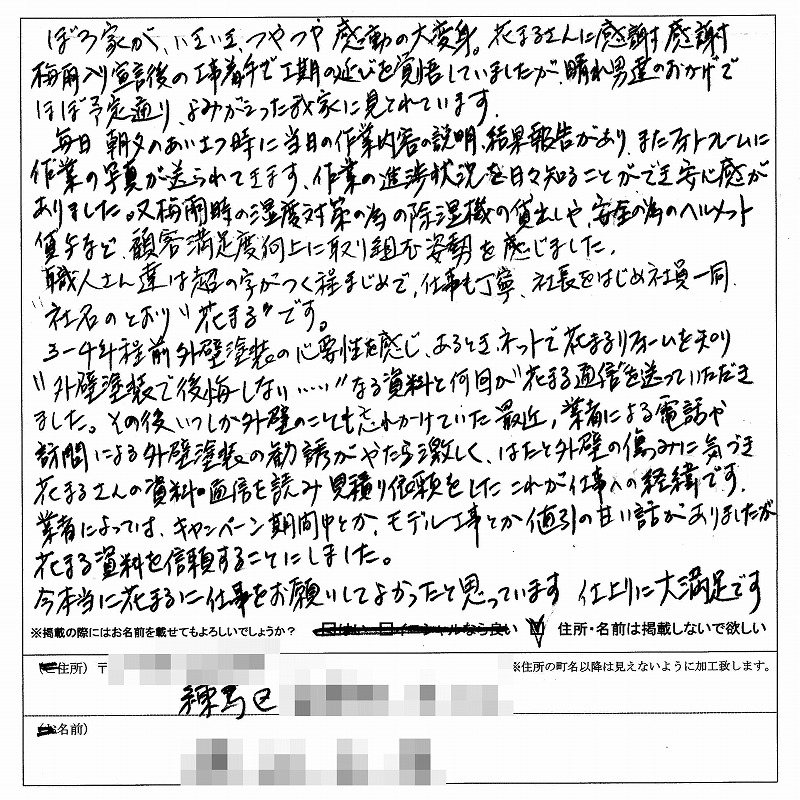 ぼろ家が、いきいき、つやつや 感動の大変身。花まるさんに感謝す 感謝す
梅雨入り宣言後の工事着手で工期の延びを覚悟していましたが、晴れ男達のおかげで
ほぼ予定通り、よみがえった我家に見とれています。
毎日 朝夕のあいさつ時に当日の作業内容の説明、結果報告があり、またフォトフレームに
作業の写真が送られてきます、作業の進捗状況を日々知ることができ安心感が
ありました。又梅雨時の湿度対策の為の除湿機の貸出しや、安全の為のヘルメット
貸与など、顧客満足度向上に取り組む姿勢を感じました。
職人さん達は超の字がつく程まじめで、仕事も丁寧、社長をはじめ社員一同、
“社名のとおり”花まる”です。
3-4年程前外壁塗装の必要性を感じ、あるとき、ネットで花まるリフォームを知り
“外壁塗装で後悔しない……”なる資料と何回か“花まる通信”を送っていただき
ました。その後いつしか外壁のことも忘れかけていた最近、業者による電話や
訪問による外壁塗装の勧誘がやたら激しく、はたと外壁の傷みに気づき
花まるさんの資料・通信を読み 見積り依頼をした これが仕事への経緯です。
業者によっては、キャンペーン期間中とか、モデル工事とか 値引の甘い話がありましたが
花まる資料を信頼することにしました。
今本当に花まるに仕事をお願いしてよかったと思っています 仕上りに大満足です
※掲載の際にはお名前を載せてもよろしいでしょうか? □はい □イニシャルなら良い □ 住所・名前は掲載しないで欲しい
(ご住所) 〒 ※住所の町名以降は見えないように加工致します。
練馬区
(お名前)